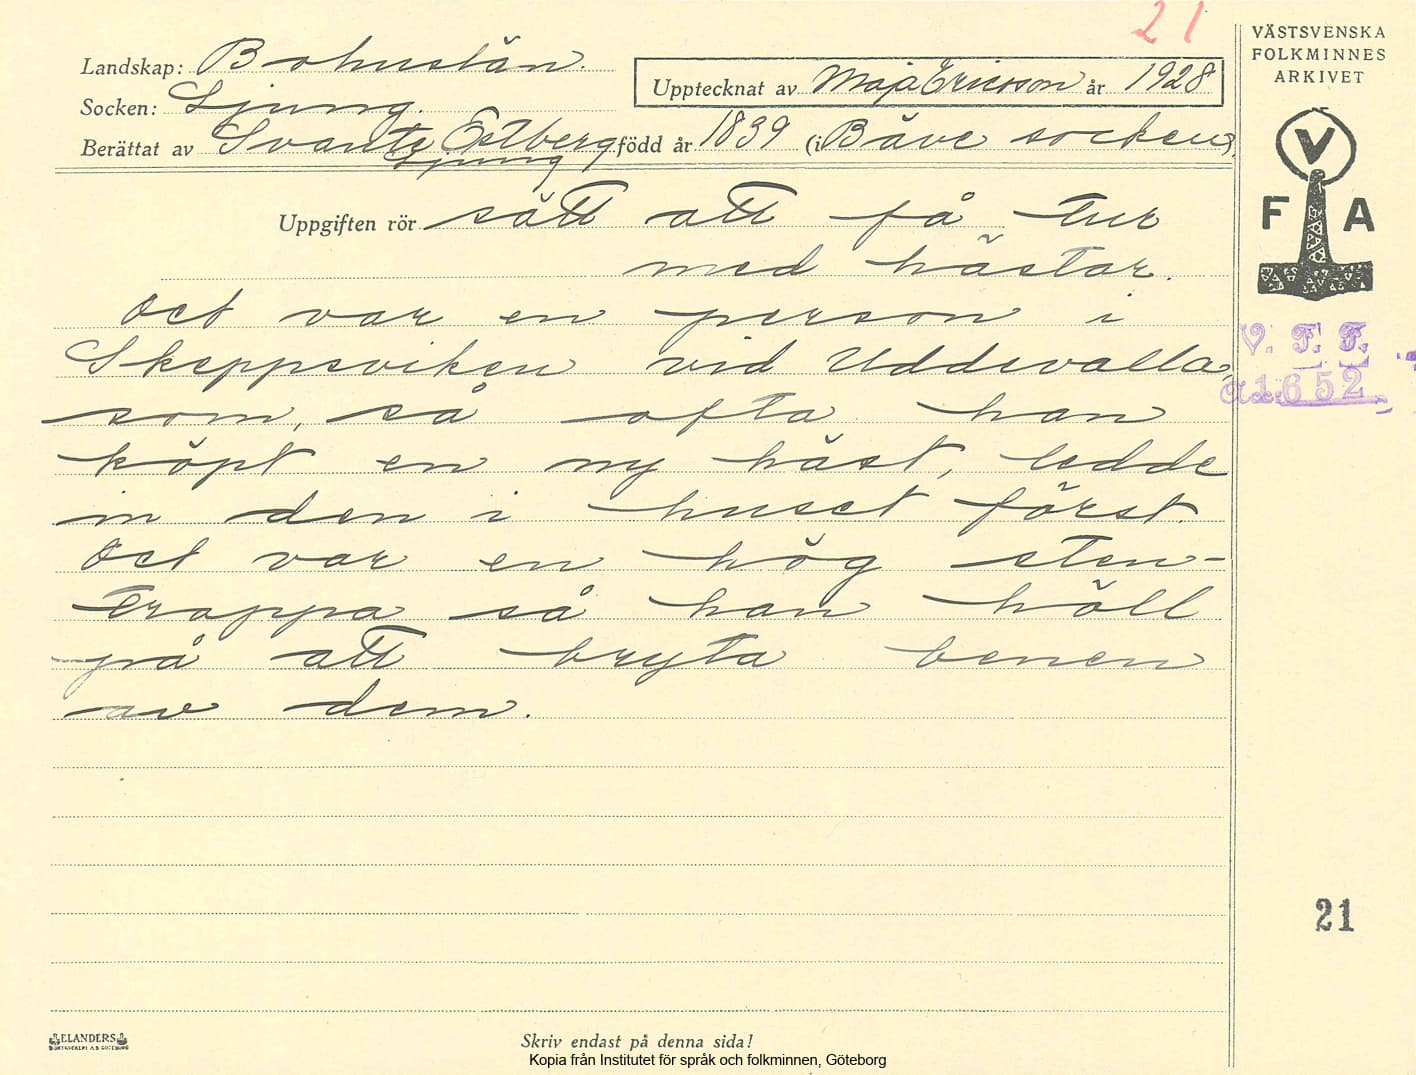 21
VÄSTSVENSKA
FOLKMINNES
ARKIVET
Landskap: Bohuslän.
Upptecknat av Maja Ericsson år 1928
Socken: Ljung.
Berättat av Svante Estberg född år 1839 (i Bäve socken).
Ljung
V
F A
Uppgiften rör sätt att få tur
med hästar.
Det var en person i
Skeppsviken vid Uddevalla,
som, så ofta han
köpt en ny häst, ledde
in den i huset först.
Det var en hög sten-
trappa så han höll
på att bryta benen
av dem.
V. F. F.
1652
21
ELANDERS
Skriv endast på denna sida!
Kopia från Institutet för språk och folkminnen, Göteborg